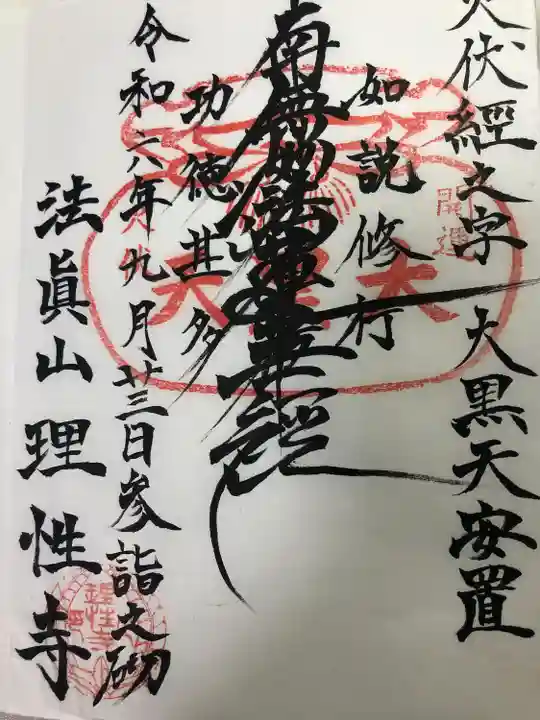 火伏經之字 大黒天安置
如説修行
南無妙法蓮華経
功徳甚多
令和六年九月廿三日参詣之砌
法眞山理性寺
開運
大黒天
理性寺